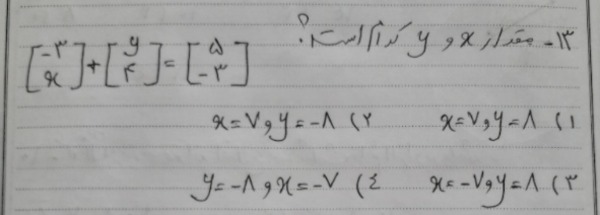 ۱۳- مقدار x و y کدام است؟ [-۳ x] + [y ۴] = [۵ -۳]
۱) x=۷ و y=۸ ۲) x=۷ و y=-۸
۳) x=-۷ و y=۸ ٤) y=-۸ و x=-۷